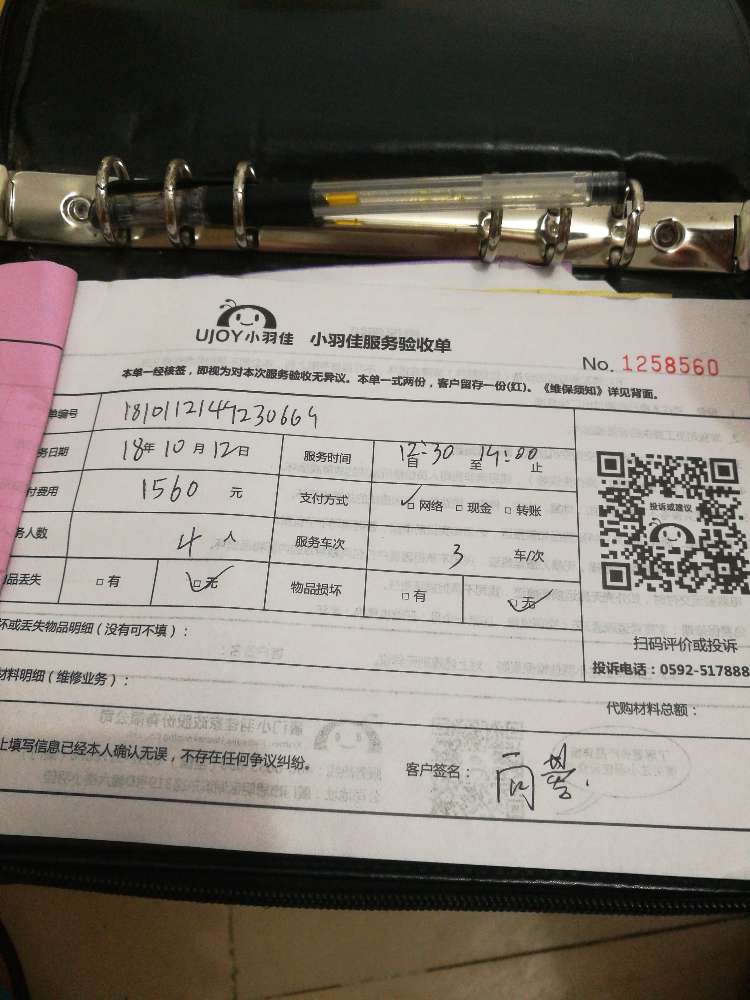 UJOY小羽佳 小羽佳服务验收单
No. 1258560
本单一经核签，即视为对本次服务验收无异议。本单一式两份，客户留存一份(红)。《维保须知》详见背面。
单编号 1810112149230664
务日期 18年10月12日 服务时间 12:30 自 至 14:00 止
付费用 1560 元 支付方式 ☑网络 □现金 □转账
务人数 4人 服务车次 3 车/次
品丢失 □有 ☑无 物品损坏 □有 ☑无
投诉或建议
扫码评价或投诉
投诉电话：0592-517888
坏或丢失物品明细（没有可不填）：
材料明细（维修业务）： 代购材料总额：
上填写信息已经本人确认无误，不存在任何争议纠纷。 客户签名：